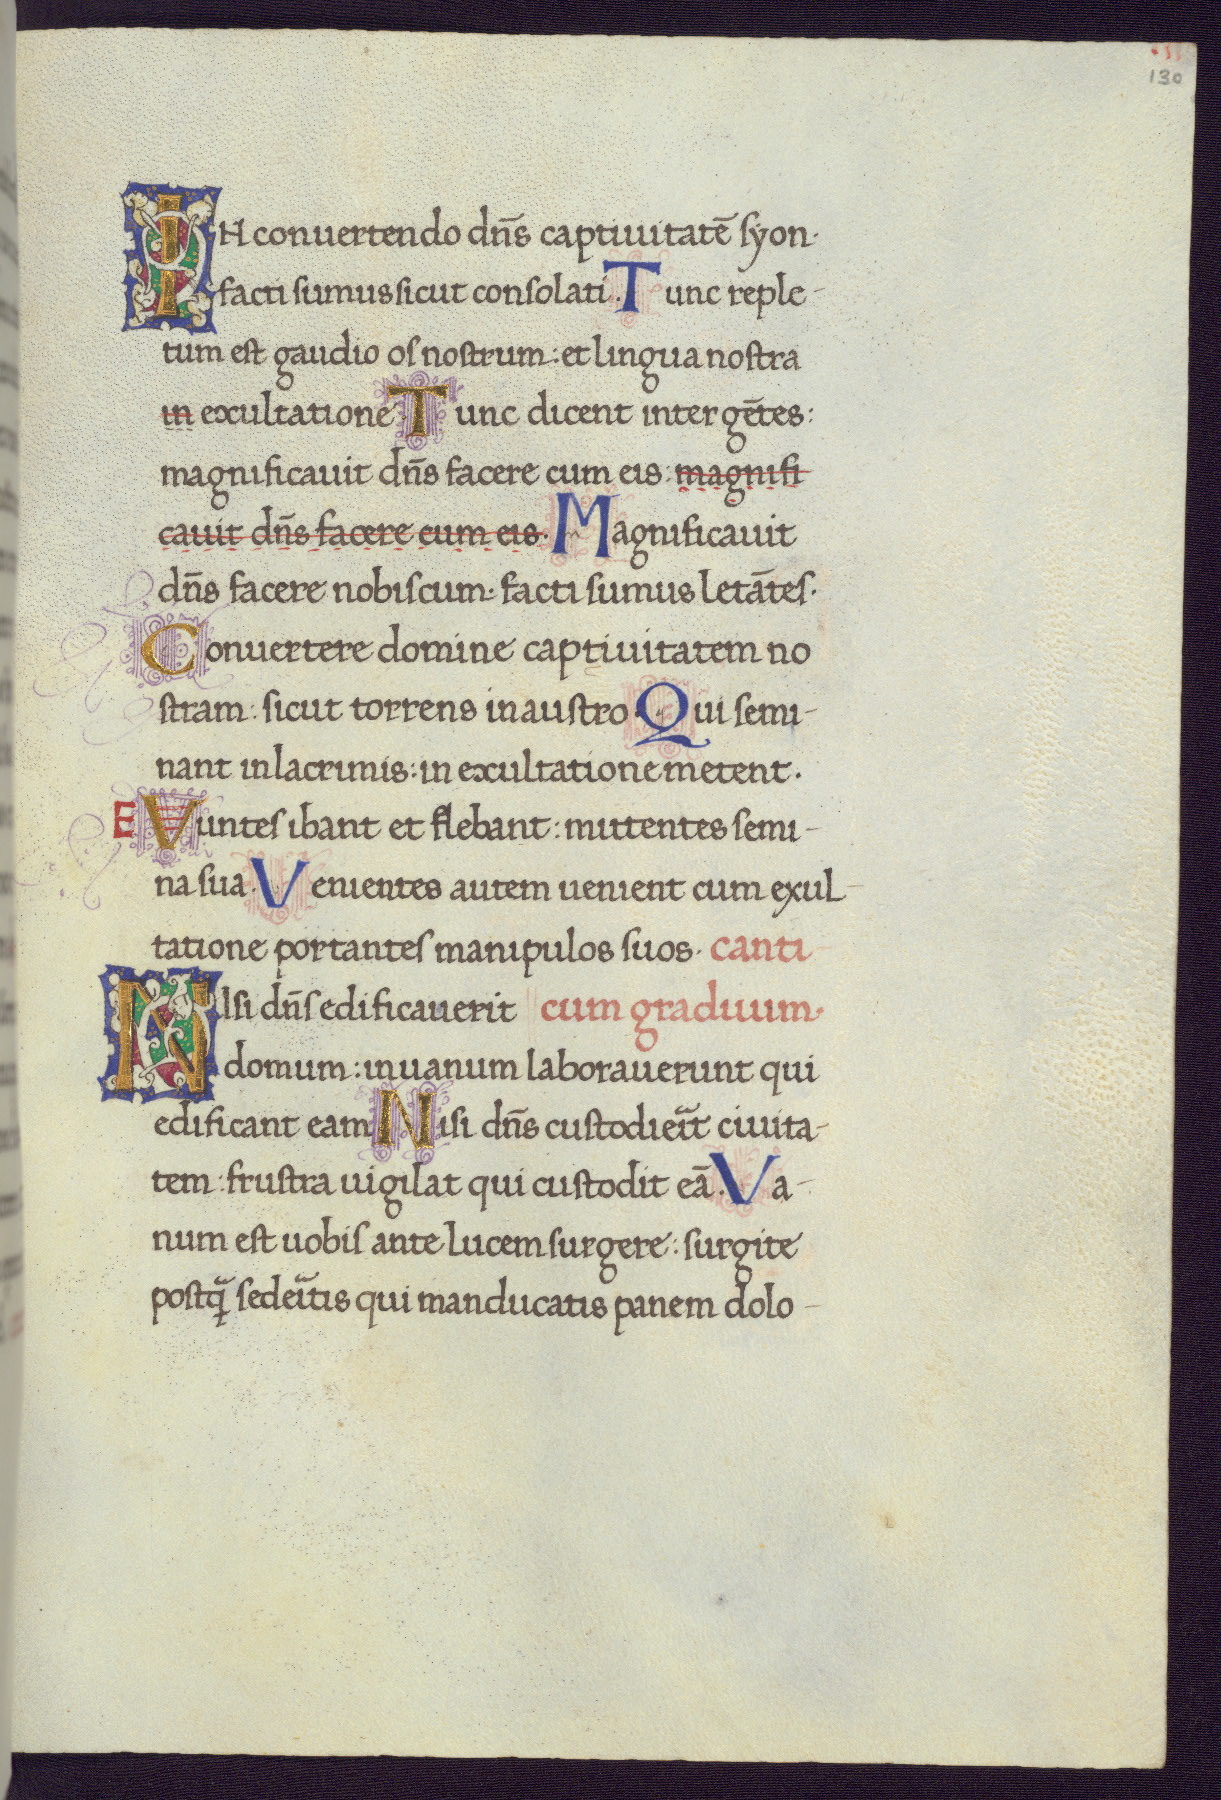 130
IN conuertendo dn̄s captiuitatē syon·
facti sumus sicut consolati. Tunc reple-
tum est gaudio os nostrum: et lingua nostra
in exultatione. Tunc dicent inter gētes:
magnificauit dn̄s facere cum eis: magnifi
cauit dn̄s facere cum eis. Magnificauit
dn̄s facere nobiscum: facti sumus letātes·
Conuertere domine captiuitatem no
stram: sicut torrens in austro. Qui semi-
nant in lacrimis: in exultatione metent.
E Vuntes ibant et flebant: mittentes semi-
na sua. Venientes autem uenient cum exul-
tatione portantes manipulos suos. canti-
NIsi dn̄s edificauerit cum graduum·
domum: in uanum laborauerunt qui
edificant eam Nisi dn̄s custodieīt ciuita-
tem: frustra uigilat qui custodit eā. Va-
num est uobis ante lucem surgere: surgite
postq̄ sedeītis qui manducatis panem dolo-